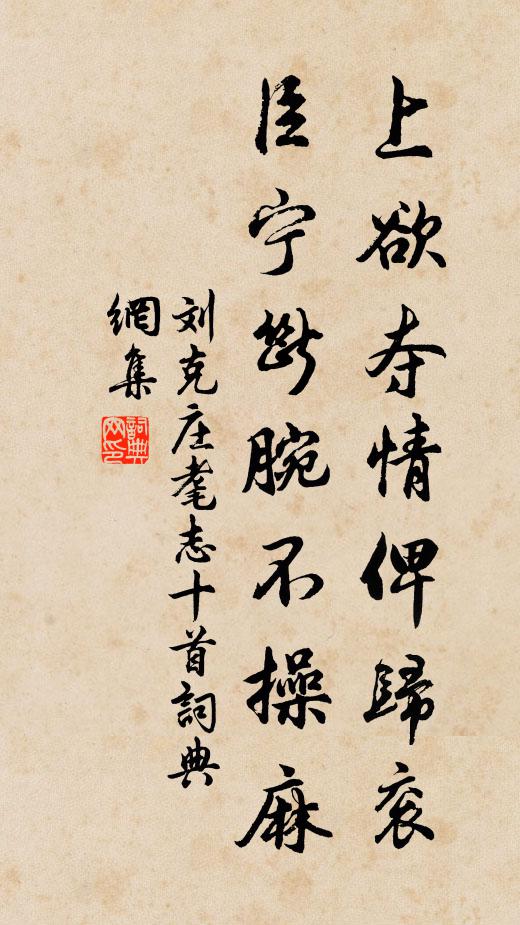 上欲夺情俾歸衮
臣宁斷腕不操麻
刘克庄耄志十首詞典
網集
詞典網印